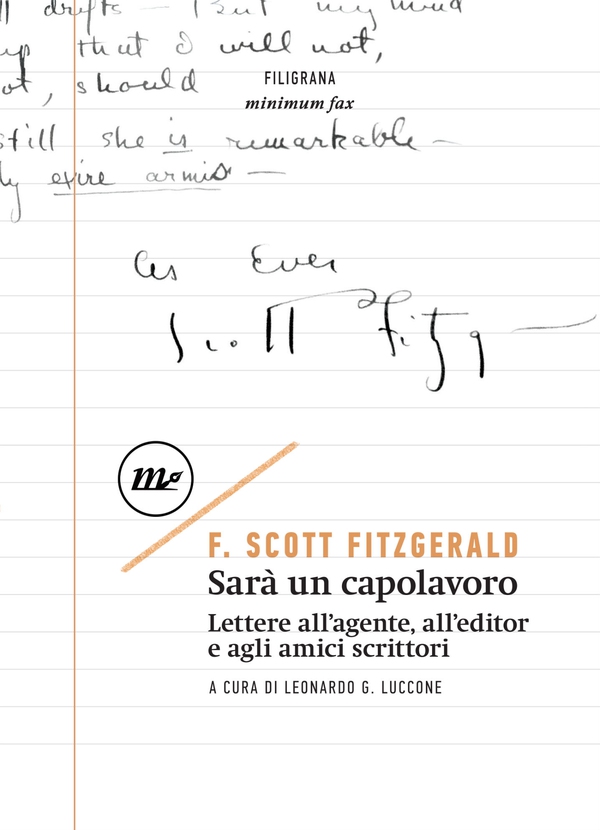 drifts — But my mind
up that I will not,
ot, should
FILIGRANA
minimum fax
still she is remarkable —
ly exire armis —
As Ever
Scott Fitzg
m
F. SCOTT FITZGERALD
Sarà un capolavoro
Lettere all’agente, all’editor
e agli amici scrittori
A CURA DI LEONARDO G. LUCCONE